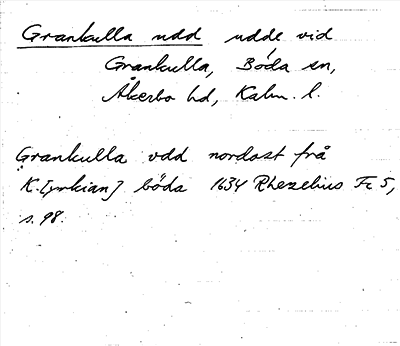 Grankulla udd udde vid
Grankulla, Böda sn,
Åkerbo hd, Kalm. l.
Grankulla vdd nordost frå
K.[yrkian] böda 1634 Rhezelius Fc 5,
s. 98.